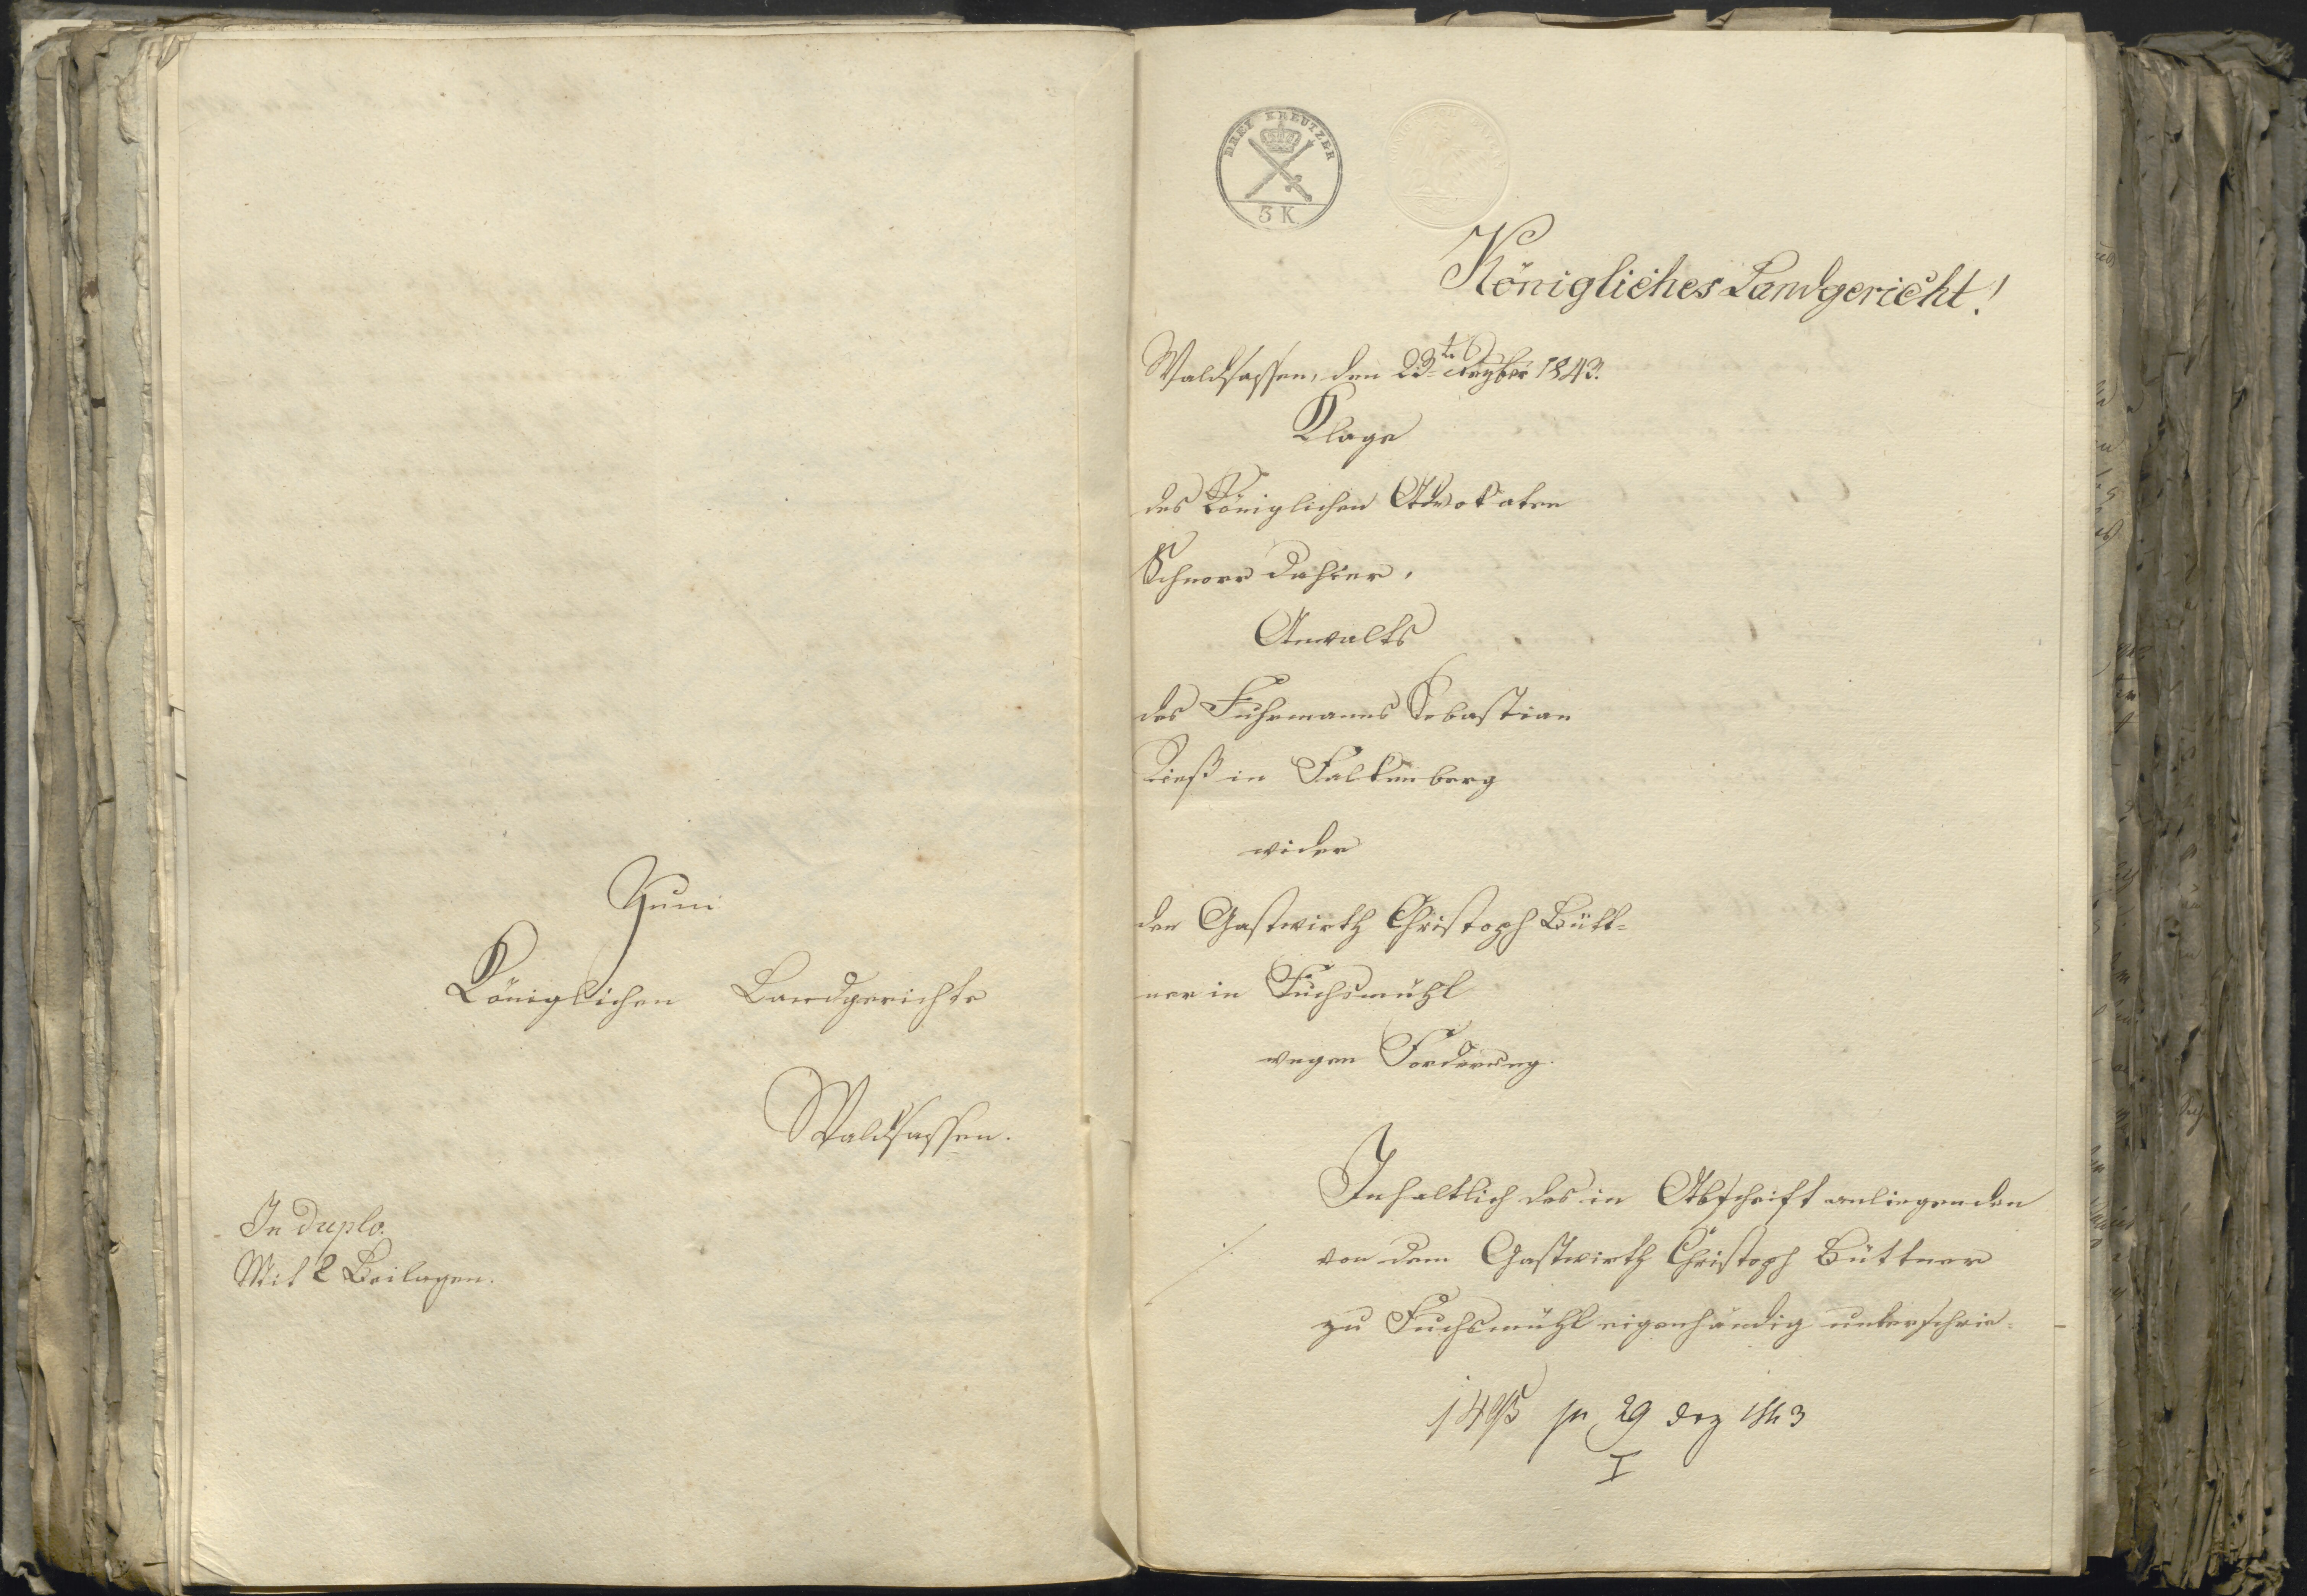 Zum
Königlichen Landgerichte
Waldsassen.
In duplo.
Mit 2 Beilagen.
DREY KREUTZER
3 K.
Königliches Landgericht!
Waldsassen, den 23te 1843.
Klage
des Königlichen Advokaten
Schnorr dahier,
Anwalts
des Fuhrmanns Sebastian
Rieß in Falkenberg
wider
den Gastwirth Christoph Bütt-
ner in Fuchsmühl
wegen Forderung.
Inhaltlich des in Abschrift anliegenden
von dem Gastwirth Christoph Büttner
zu Fuchsmühl eigenhändig unterschrie-
./.
pr 29 Dez 1843
I